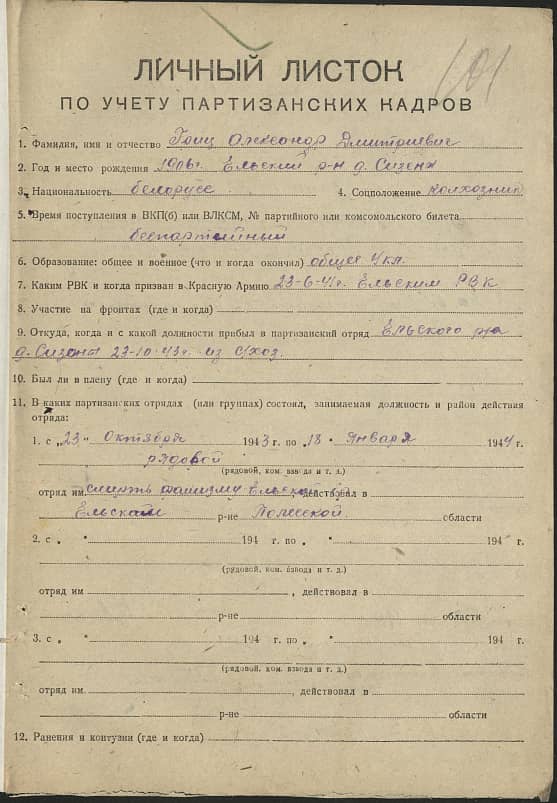 101
ЛИЧНЫЙ ЛИСТОК
ПО УЧЕТУ ПАРТИЗАНСКИХ КАДРОВ
1. Фамилия, имя и отчество Гриц Александр Дмитриевич
2. Год и место рождения 1906г. Ельский р-н д.
3. Национальность белорусс. 4. Соцположение колхозник
5. Время поступления в ВКП(б) или ВЛКСМ, № партийного или комсомольского билета
беспартийный
6. Образование: общее и военное (что и когда окончил) общее 4 кл.
7. Каким РВК и когда призван в Красную Армию 23-6-41г. Ельским РВК
8. Участие на фронтах (где и когда)
9. Откуда, когда и с какой должности прибыл в партизанский отряд Ельского р-на
д. 23-10-43г. из с/хоз.
10. Был ли в плену (где и когда)
11. В каких партизанских отрядах (или группах) состоял, занимаемая должность и район действия
отряда:
1. с „23" Октября 1943 г. по „18" Января 1944 г.
рядовой
(рядовой, ком. взвода и т. д.)
отряд им смерть фашизму Ельской , действовал в
Ельском р-не Полесской. области
2. с „ " 194 г. по „ " 194 г.
(рядовой, ком. взвода и т. д.)
отряд им , действовал в
р-не области
3. с „ " 194 г. по „ " 194 г.
(рядовой, ком. взвода и т. д.)
отряд им , действовал в
р-не области
12. Ранения и контузии (где и когда)